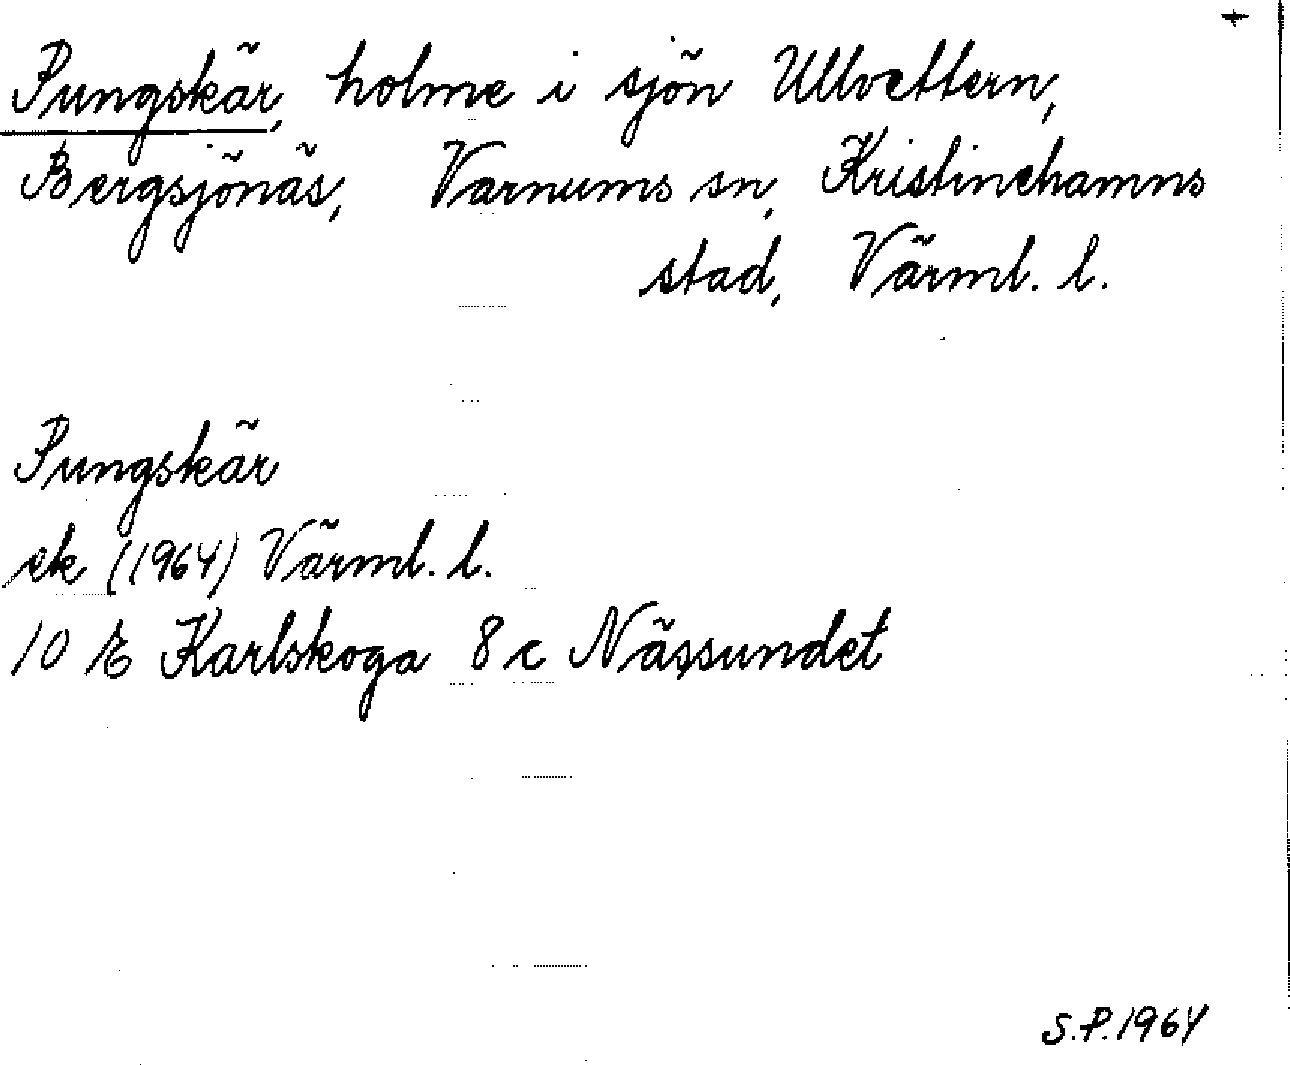 +
Pungskär, holme i sjön Ullvettern,
Bergsjönäs, Varnums sn, Kristinehamns
stad, Värml. l.
Pungskär
ek (1964) Värml. l.
10 E Karlskoga 8 c Nässundet
S.P. 1964